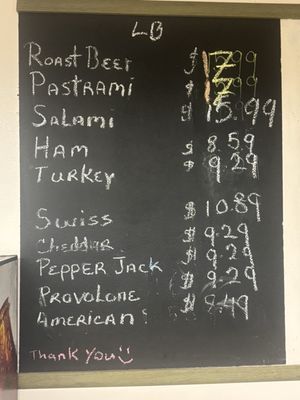 LB
Roast Beef $ 17.99
Pastrami $ 17.99
Salami $ 15.99
Ham $ 8.59
Turkey $ 9.29
Swiss $ 10.89
Cheddar $ 9.29
Pepper Jack $ 9.29
Provolone $ 9.29
American $ 8.49
Thank you